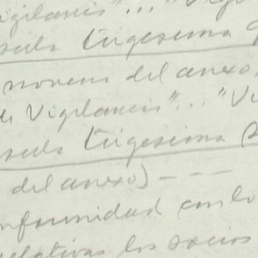 Vigilancia"... "Vig
sula trigesima
novena del anexo
de Vigilancia"... "Vi
sula trigesima s
del anexo) - - -
onformidad con lo
relativas los socios